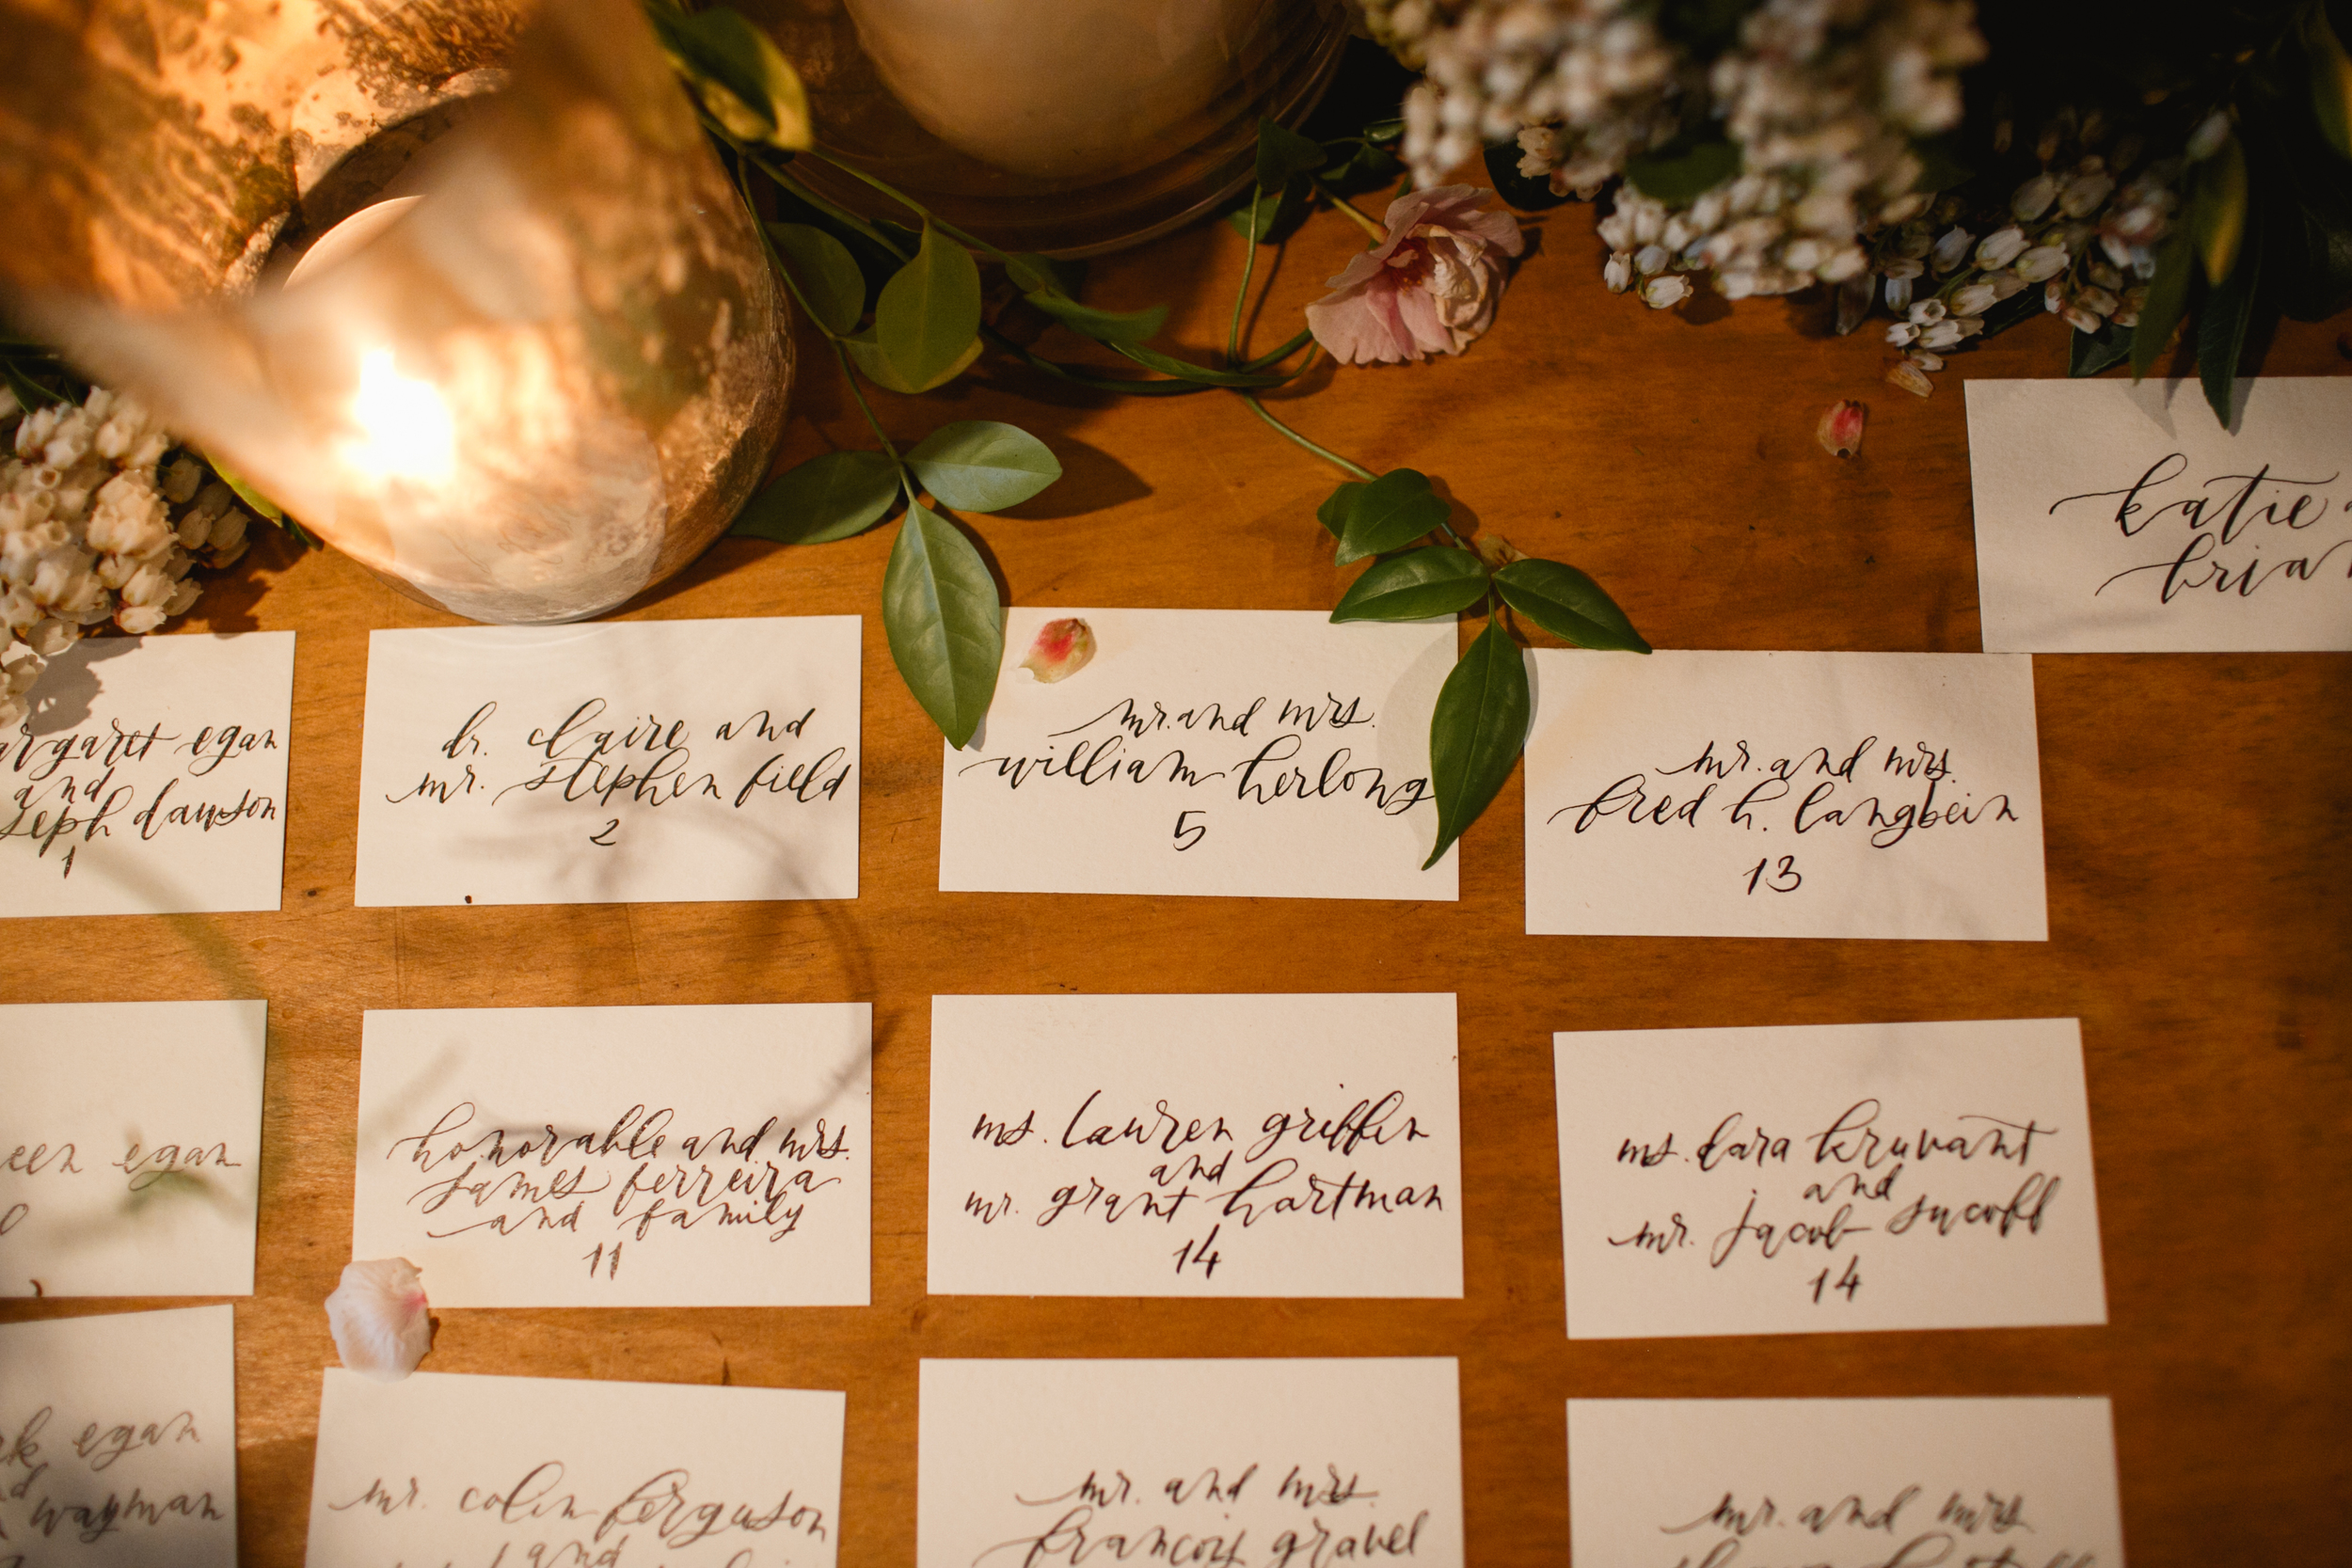 katie
egan
and
dawson
1
dr. claire and
mr. stephen field
2
mr. and mrs.
william herlong
5
mr. and mrs.
fred h. langbein
13
egan
honorable and mrs.
james ferreira
and family
11
ms. lauren griffin
and
mr. grant hartman
14
ms. dara kruvant
and
mr. jacob
14
egan
wayman
mr. colin ferguson
and
mr. and mrs.
francois gravel
mr. and mrs.